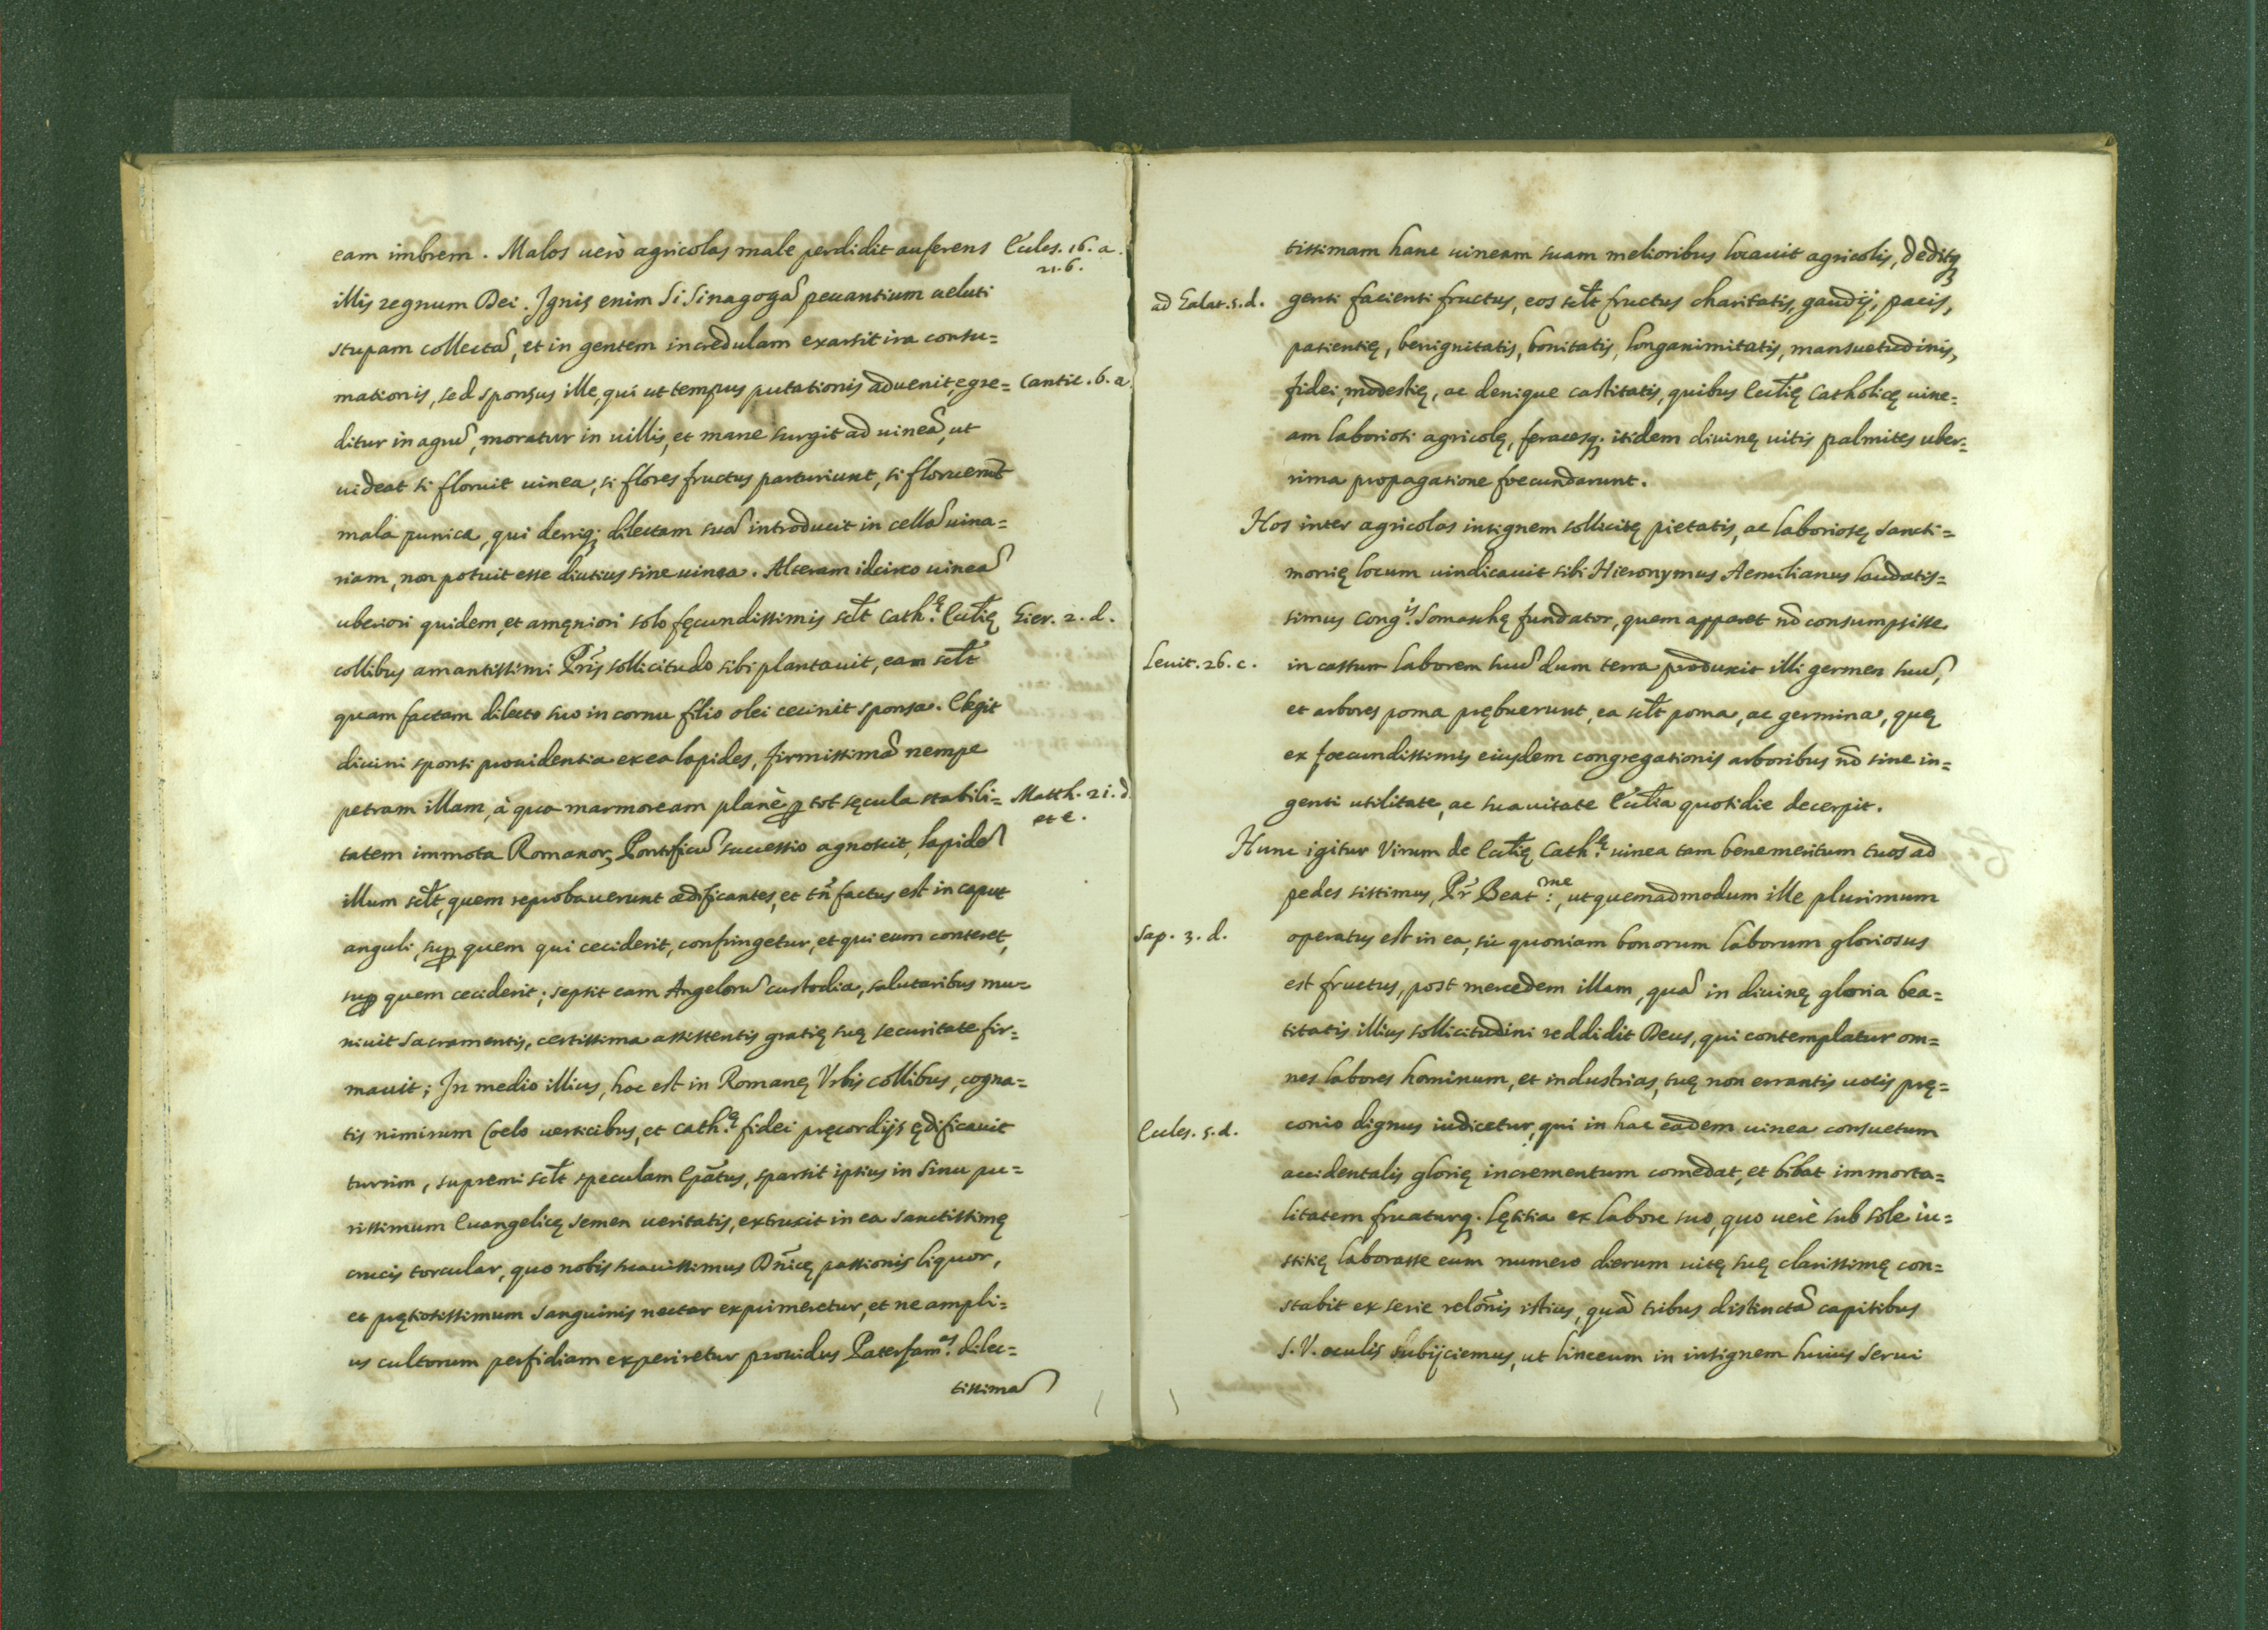 eam imbrem. Malos uerò agricolas male perdidit auferens
Eccles. 16. a.
21. 6.
illis regnum Dei. Ignis enim Si Sinagogã peccantium ueluti
stupam collectã, et in gentem incredulam exarsit ira consu=
mationis, sed sponsus ille, qui ut tempus putationis aduenit, egre=
Cantic. 6. a
ditur in agrũ, moratur in uillis, et mane surgit ad uineã, ut
uideat si floruit uinea, si flores fructus parturiunt, si floruerũt
mala punica, qui deniq; dilectam suã introducit in cellã uina=
riam, non potuit esse diutius sine uinea. Alteram idcirco uineã
uberiori quidem, et amęniori solo fęcundissimis sclt Cath.ę Ecclię
Gier. 2. d.
collibus amantissimi Prĩs sollicitudo sibi plantauit, eam sclt
quam factam dilecto suo in cornu filio olei cecinit sponsa. Elegit
diuini sponsi prouidentia ex ea lapides, firmissimã nempe
petram illam, à qua marmoream planè p tot sęcula stabili=
Matth. 21. d
et e.
tatem immota Romanor; Pontificũ successio agnoscit, lapidẽ
illum sclt, quem reprobauerunt ædificantes, et tñ factus est in caput
anguli, sup quem qui ceciderit, confringetur, et qui eum conteret,
sup quem ceciderit; sepsit eam Angelorũ custodia, salutaribus mu=
niuit Sacramentis, certissima assistentis gratię suę securitate fir=
mauit; In medio illius, hoc est in Romanę Vrbis collibus, cogna=
tis nimirum Coelo uerticibus, et Cath.ę fidei pręcordijs ędificauit
turrim, supremi sclt speculam Epãtus, sparsit ipsius in sinu pu=
rissimum Euangelicę semen ueritatis, extruxit in ea Sanctissimę
crucis torcular, quo nobis suauissimus Dñicę passionis liquor,
et prętiosissimum Sanguinis nectar exprimeretur, et ne ampli=
us cultorum perfidiam experiretur prouidus Paterfam.as dilec=
tissimã
tissimam hanc uineam suam melioribus locauit agricolis, deditq;
ad Galat. 5. d.
genti facienti fructus, eos sclt fructus charitatis, gaudij, pacis,
patientię, benignitatis, bonitatis, longanimitatis, mansuetudinis,
fidei, modestię, ac denique castitatis, quibus Ecclię Catholicę uine=
am laboriosi agricolę, feracesq; itidem diuinę uitis palmites uber=
rima propagatione foecundarunt.
Hos inter agricolas insignem sollicitę pietatis, ac laboriosę Sancti=
monię locum uindicauit sibi Hieronymus Aemilianus laudatis=
simus Cong.is Somaschę fundator, quem apparet nõ consumpsisse
Leuit. 26. c.
in cassum laborem suũ dum terra produxit illi germen suũ,
et arbores poma prębuerunt, ea sclt poma, ac germina, quę
ex foecundissimis eiusdem congregationis arboribus nõ sine in=
genti utilitate, ac suauitate Ecclia quotidie decerpit.
Hunc igitur Virum de Ecclię Cath.ę uinea tam benemeritum tuos ad
pedes sistimus, Pr̃ Beat.me, ut quemadmodum ille plurimum
Sap. 3. d.
operatus est in ea, sic quoniam bonorum laborum gloriosus
est fructus, post mercedem illam, quã in diuinę gloria bea=
titatis illius sollicitudini reddidit Deus, qui contemplatur om=
nes labores hominum, et industrias, tuę non errantis uocis prę=
Eccles. 5. d.
conio dignus iudicetur, qui in hac eadem uinea consuetum
accidentalis glorię incrementum comedat, et bibat immorta=
litatem fruaturq; lętitia ex labore suo, quo uerè sub sole iu=
stitię laborasse eum numero dierum uitę suę clarissimę con=
stabit ex serie relõnis istius, quã tribus distinctã capitibus
S. V. oculis subijciemus, ut linceum in insignem huius Serui